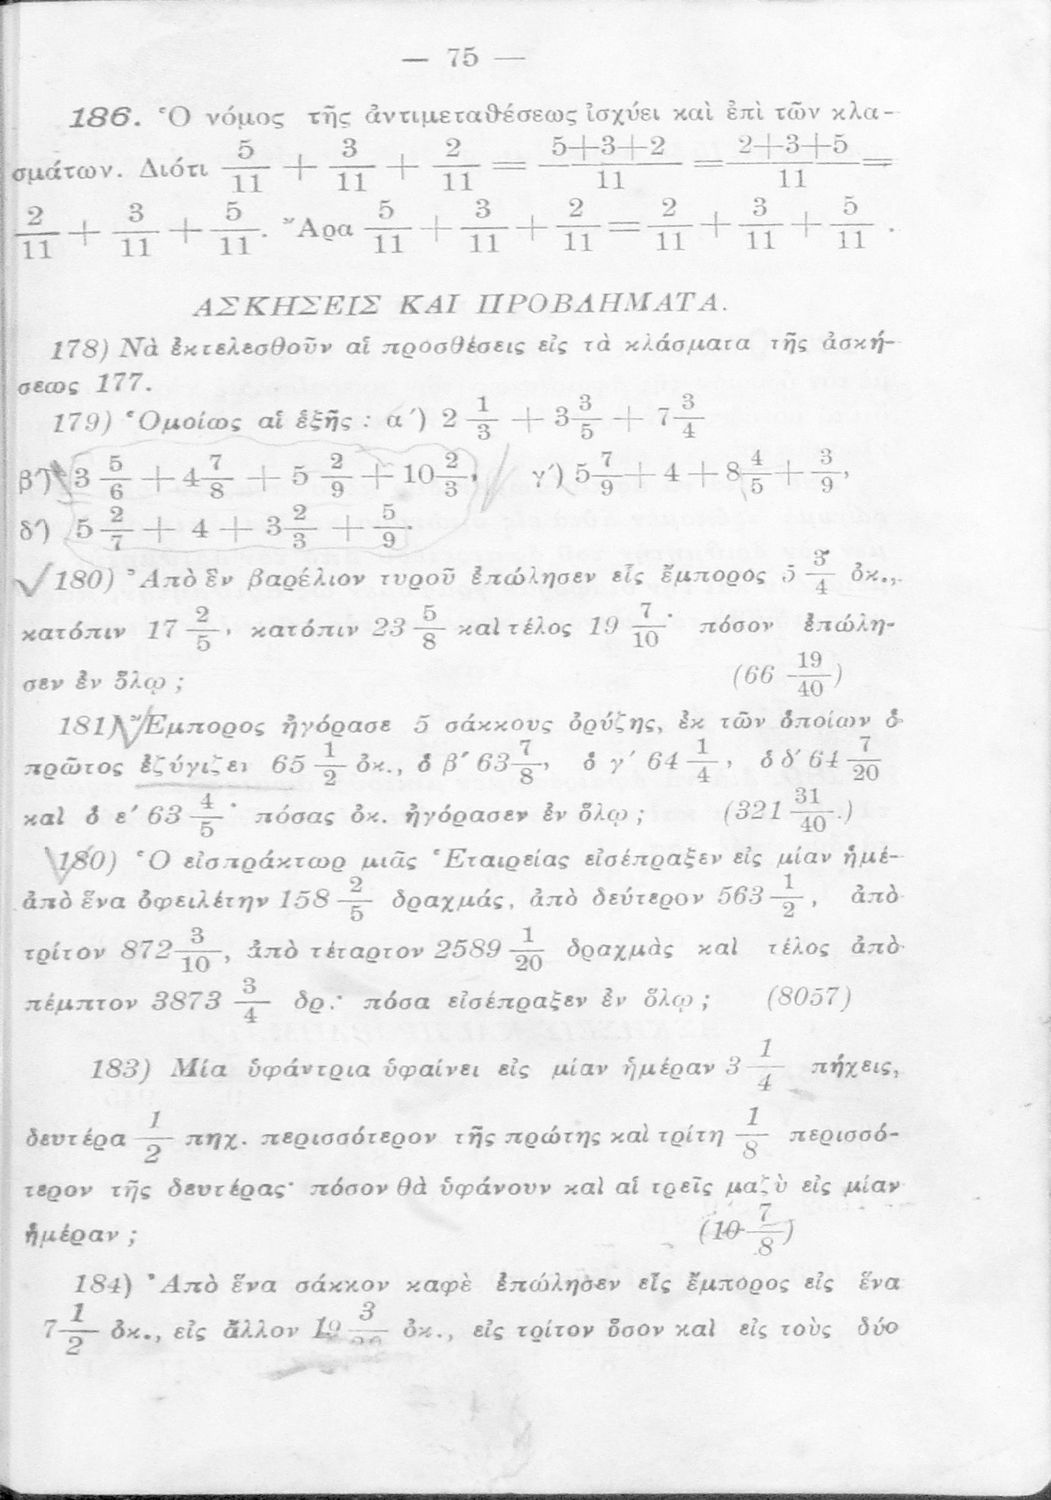 — 75 —
186. Ὁ νόμος τῆς ἀντιμεταθέσεως ἰσχύει καὶ ἐπὶ τῶν κλα-
σμάτων. Διότι 5/11 + 3/11 + 2/11 = 5+3+2/11 = 2+3+5/11 =
2/11 + 3/11 + 5/11. Ἄρα 5/11 + 3/11 + 2/11 = 2/11 + 3/11 + 5/11.
ΑΣΚΗΣΕΙΣ ΚΑΙ ΠΡΟΒΛΗΜΑΤΑ.
178) Νὰ ἐκτελεσθοῦν αἱ προσθέσεις εἰς τὰ κλάσματα τῆς ἀσκή-
σεως 177.
179) Ὁμοίως αἱ ἑξῆς : α΄) 2 1/3 + 3 3/5 + 7 3/4
β΄) 3 5/6 + 4 7/8 + 5 2/9 + 10 2/3, γ΄) 5 7/9 + 4 + 8 4/5 + 3/9,
δ΄) 5 2/7 + 4 + 3 2/3 + 5/9.
180) Ἀπὸ ἓν βαρέλιον τυροῦ ἐπώλησεν εἷς ἔμπορος 5 3/4 ὀκ.,
κατόπιν 17 2/5, κατόπιν 23 5/8 καὶ τέλος 19 7/10· πόσον ἐπώλη-
σεν ἐν ὅλῳ ; (66 19/40)
181) Ἔμπορος ἠγόρασε 5 σάκκους ὀρύζης, ἐκ τῶν ὁποίων ὁ
πρῶτος ἐζύγιζει 65 1/2 ὀκ., ὁ β΄ 63 7/8, ὁ γ΄ 64 1/4, ὁ δ΄ 64 7/20
καὶ ὁ ε΄ 63 4/5· πόσας ὀκ. ἠγόρασεν ἐν ὅλῳ ; (321 31/40.)
180) Ὁ εἰσπράκτωρ μιᾶς Ἑταιρείας εἰσέπραξεν εἰς μίαν ἡμέ-
ἀπὸ ἕνα ὀφειλέτην 158 2/5 δραχμάς, ἀπὸ δεύτερον 563 1/2, ἀπὸ
τρίτον 872 3/10, ἀπὸ τέταρτον 2589 1/20 δραχμὰς καὶ τέλος ἀπὸ
πέμπτον 3873 3/4 δρ.· πόσα εἰσέπραξεν ἐν ὅλῳ ; (8057)
183) Μία ὑφάντρια ὑφαίνει εἰς μίαν ἡμέραν 3 1/4 πήχεις,
δευτέρα 1/2 πηχ. περισσότερον τῆς πρώτης καὶ τρίτη 1/8 περισσό-
τερον τῆς δευτέρας· πόσον θὰ ὑφάνουν καὶ αἱ τρεῖς μαζὺ εἰς μίαν
ἡμέραν ; (10 7/8)
184) Ἀπὸ ἕνα σάκκον καφὲ ἐπώλησεν εἷς ἔμπορος εἰς ἕνα
7 1/2 ὀκ., εἰς ἄλλον ὀκ., εἰς τρίτον ὅσον καὶ εἰς τοὺς δύο